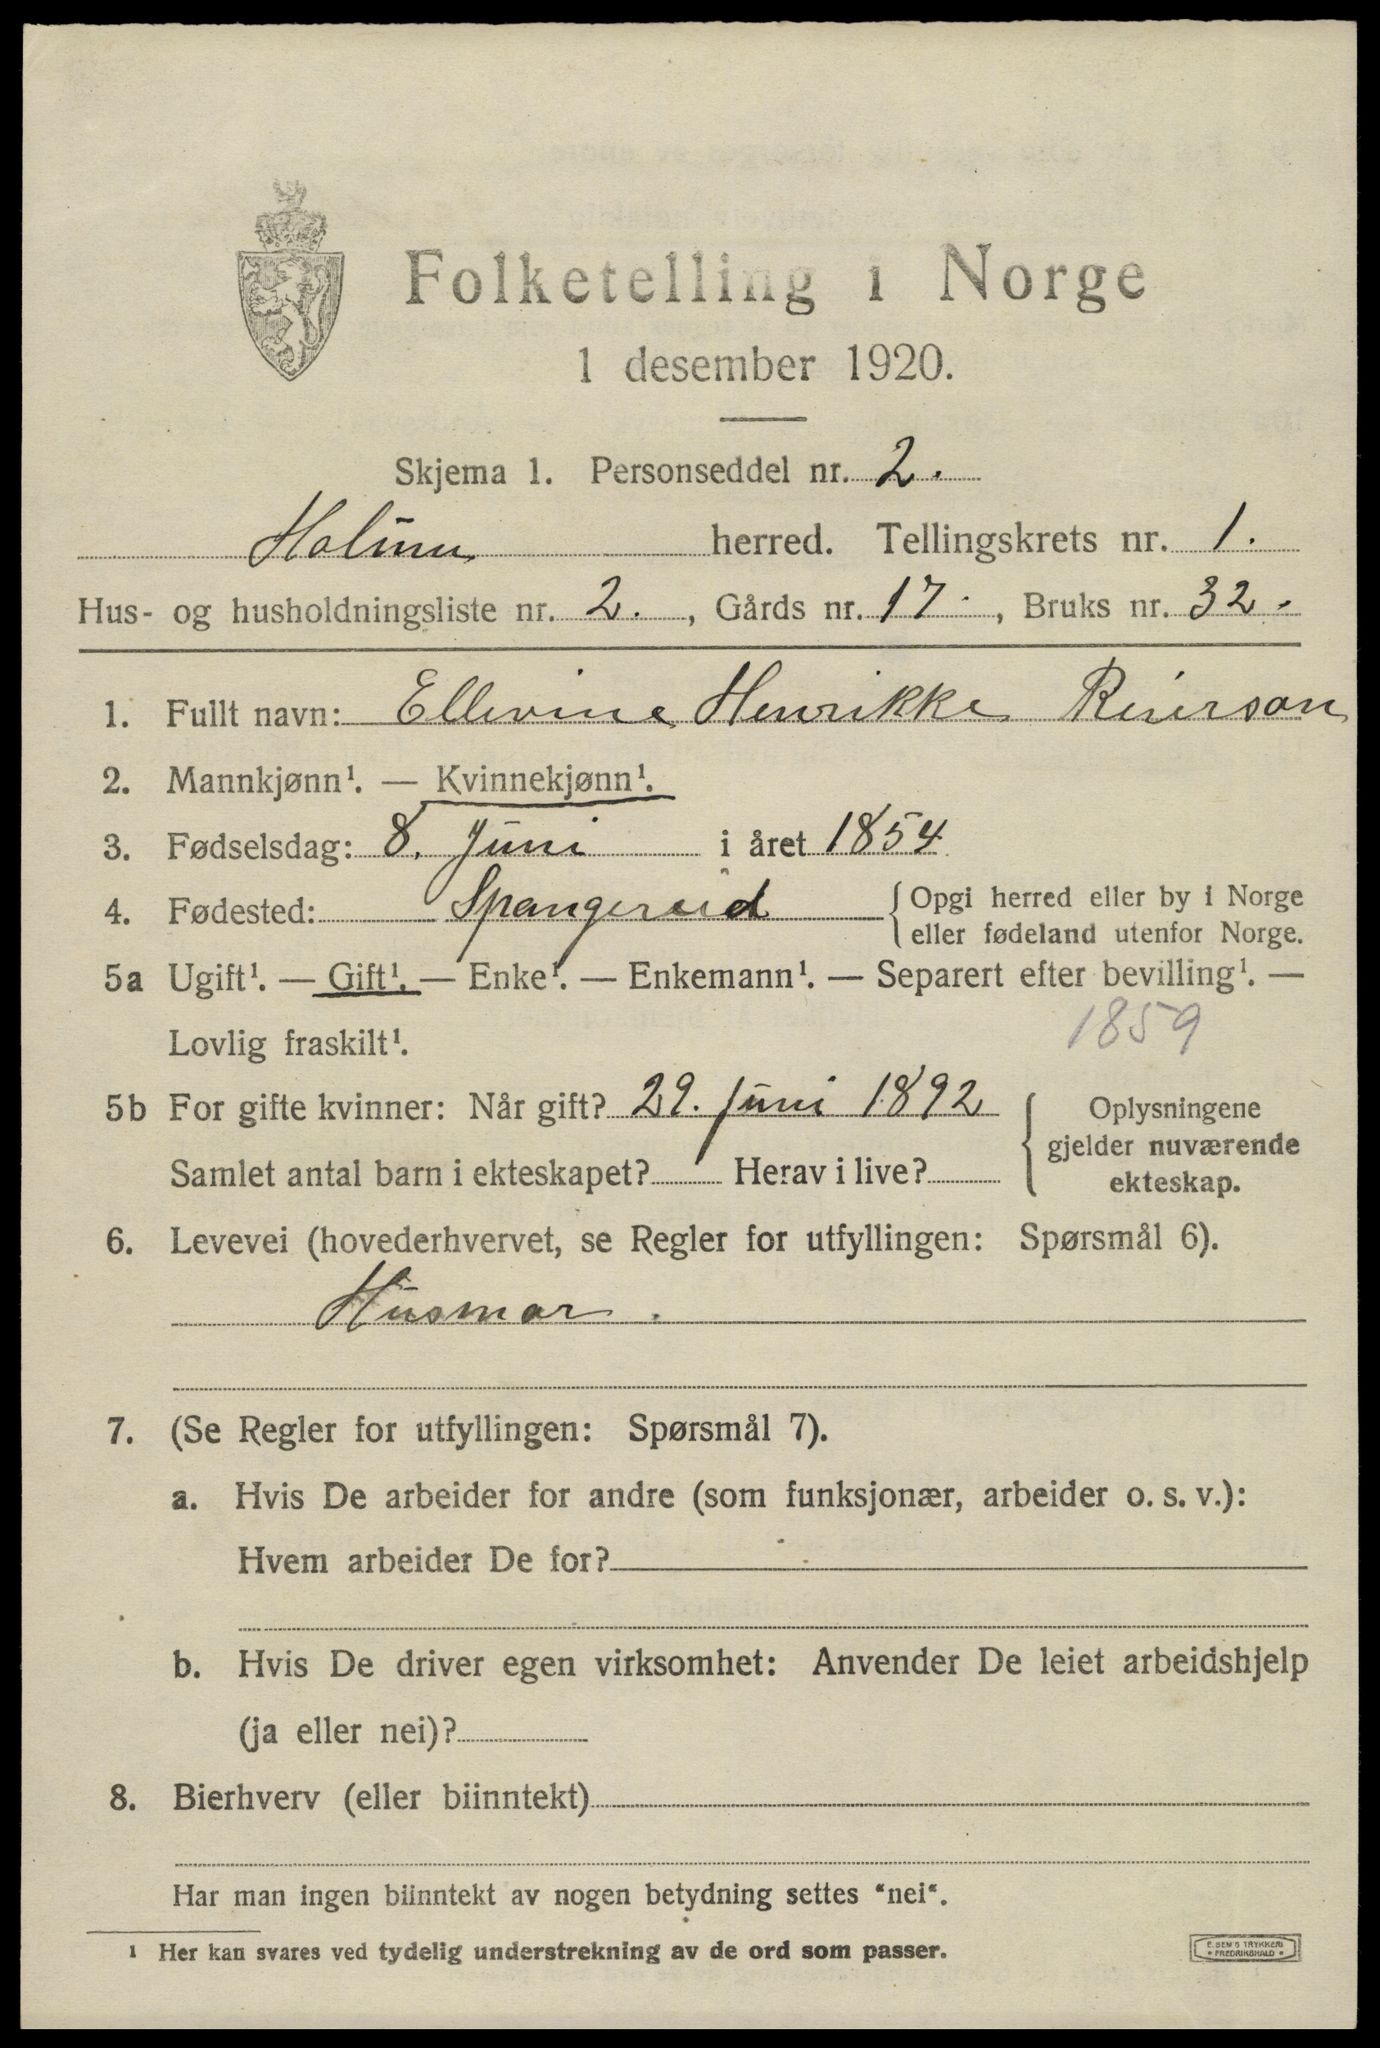 Folketelling i Norge
1 desember 1920.
Skjema 1. Personseddel nr. 2.
Holum herred. Tellingskrets nr. 1.
Hus- og husholdningsliste nr. 2., Gårds nr. 17., Bruks nr. 32.
1. Fullt navn: Ellevine Henrikke Reierson
2. Mannkjønn¹. — Kvinnekjønn¹.
3. Fødselsdag: 8. Juni i året 1854
4. Fødested: Spangereid { Opgi herred eller by i Norge
eller fødeland utenfor Norge.
5a Ugift¹. — Gift¹. — Enke¹. — Enkemann¹. — Separert efter bevilling¹. —
Lovlig fraskilt¹. 1859
5b For gifte kvinner: Når gift? 29. Juni 1892 { Oplysningene
gjelder nuværende
Samlet antal barn i ekteskapet? Herav i live?
ekteskap.
6. Levevei (hovederhvervet, se Regler for utfyllingen: Spørsmål 6).
Husmor.
7. (Se Regler for utfyllingen: Spørsmål 7).
a. Hvis De arbeider for andre (som funksjonær, arbeider o. s. v.):
Hvem arbeider De for?
b. Hvis De driver egen virksomhet: Anvender De leiet arbeidshjelp
(ja eller nei)?
8. Bierhverv (eller biinntekt)
Har man ingen biinntekt av nogen betydning settes "nei".
¹ Her kan svares ved tydelig understrekning av de ord som passer.
E. SEM'S TRYKKERI
• FREDRIKSHALD •